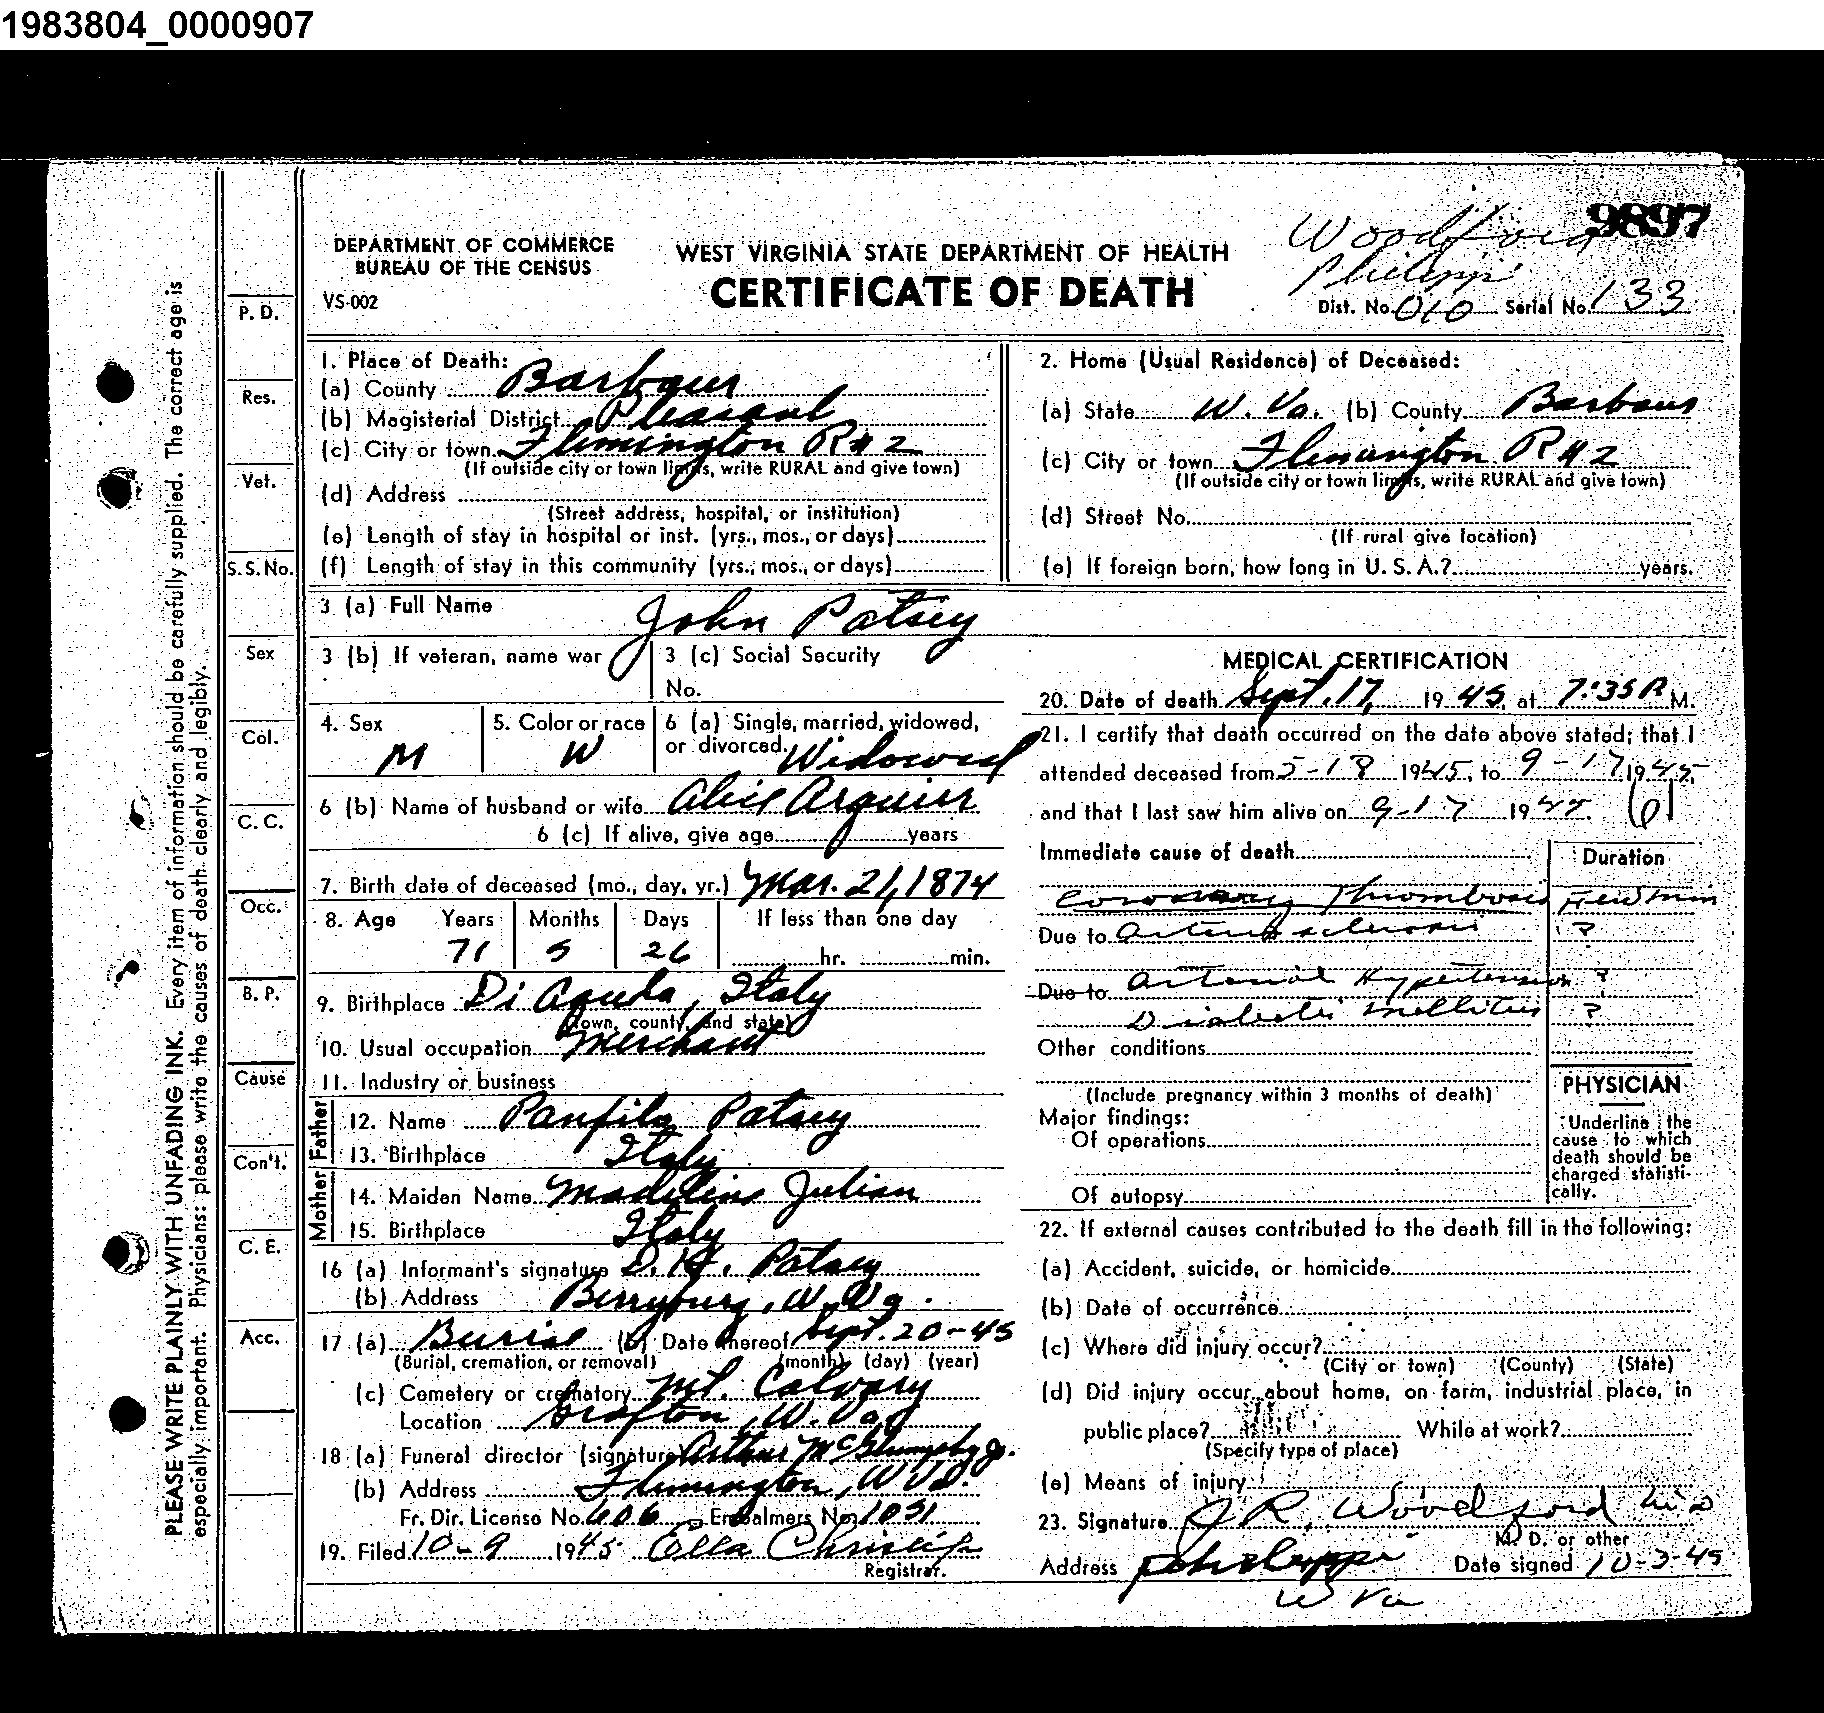 1983804_0000907
9897
Woodford
Philippi
DEPARTMENT OF COMMERCE
BUREAU OF THE CENSUS
VS-002
WEST VIRGINIA STATE DEPARTMENT OF HEALTH
CERTIFICATE OF DEATH
Dist. No. 010 Serial No. 133
PLEASE WRITE PLAINLY WITH UNFADING INK. Every item of information should be carefully supplied. The correct age is
especially important. Physicians: please write the causes of death clearly and legibly.
P. D.
Res.
Vet.
S. S. No.
Sex
Col.
C. C.
Occ.
B. P.
Cause
Con't.
C. E.
Acc.
1. Place of Death:
(a) County Barbour
(b) Magisterial District Pleasant
(c) City or town Flemington R#2
(If outside city or town limits, write RURAL and give town)
(d) Address
(Street address, hospital, or institution)
(e) Length of stay in hospital or inst. (yrs., mos., or days)
(f) Length of stay in this community (yrs., mos., or days)
2. Home (Usual Residence) of Deceased:
(a) State W. Va. (b) County Barbour
(c) City or town Flemington R#2
(If outside city or town limits, write RURAL and give town)
(d) Street No.
(If rural give location)
(e) If foreign born, how long in U. S. A.? years.
3 (a) Full Name John Patsey
3 (b) If veteran, name war
3 (c) Social Security
No.
4. Sex M
5. Color or race W
6 (a) Single, married, widowed,
or divorced. Widowed
6 (b) Name of husband or wife Alice
6 (c) If alive, give age years
7. Birth date of deceased (mo., day, yr.) Mar. 21, 1874
8. Age Years Months Days If less than one day
71 5 26 hr. min.
9. Birthplace Di Italy
(town, county, and state)
10. Usual occupation Merchant
11. Industry or business
Father
12. Name Panfilo Patsey
13. Birthplace Italy
Mother
14. Maiden Name Madeline Julian
15. Birthplace Italy
16 (a) Informant's signature D. H. Patsey
(b) Address Berryburg, W. Va.
17 (a) Burial (b) Date thereof Sept. 20-45
(Burial, cremation, or removal) (month) (day) (year)
(c) Cemetery or crematory Mt. Calvary
Location Grafton, W. Va.
18 (a) Funeral director (signature) Arthur Jr.
(b) Address Flemington, W Va.
Fr. Dir. License No. 606 Embalmers No. 1051
19. Filed 10-9 1945 Ella
Registrar.
MEDICAL CERTIFICATION
20. Date of death Sept. 17, 1945, at 7:35 A M.
21. I certify that death occurred on the date above stated; that I
attended deceased from 5-18 1945, to 9-17 1945
and that I last saw him alive on 9-17 1945.
Immediate cause of death Duration
Coronary Thrombosis Few min
Due to Arteriosclerosis ?
Due to Arterial Hypertension ?
Diabetes Mellitus ?
Other conditions
(Include pregnancy within 3 months of death)
Major findings:
Of operations
Of autopsy
PHYSICIAN
Underline the
cause to which
death should be
charged statisti-
cally.
22. If external causes contributed to the death fill in the following:
(a) Accident, suicide, or homicide
(b) Date of occurrence
(c) Where did injury occur?
(City or town) (County) (State)
(d) Did injury occur about home, on farm, industrial place, in
public place? While at work?
(Specify type of place)
(e) Means of injury
23. Signature J R. Woodford M D
M. D. or other
Address Philippi Date signed 10-3-45
W Va